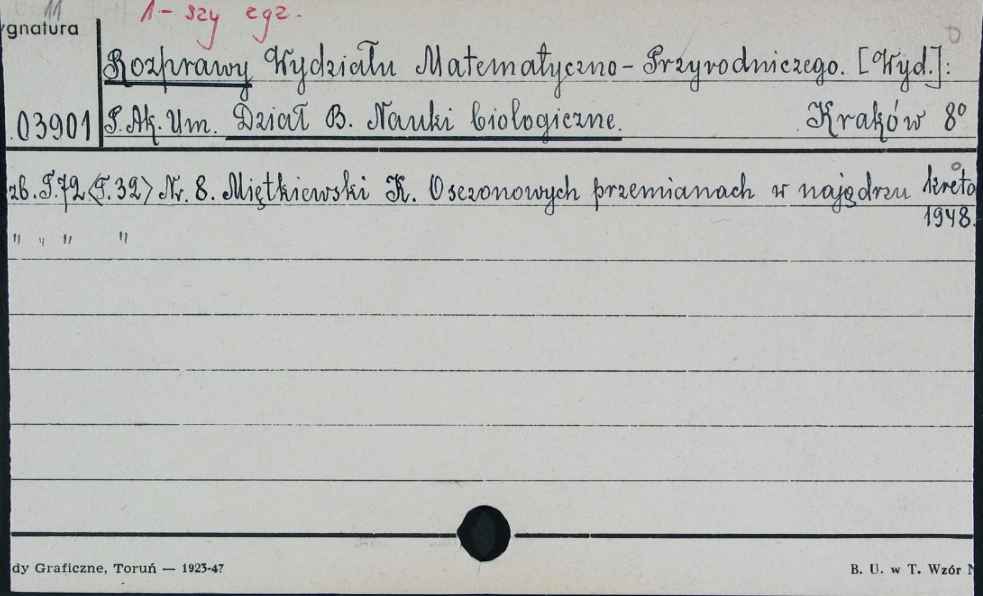 11 1-szy egz.
ygnatura
Rozprawy Wydziału Matematyczno-Przyrodniczego. [Wyd.]:
03901 P. Ak. Um. Dział B. Nauki biologiczne. Kraków 8°
zb. T.72 <T.32> Nr. 8. Miętkiewski K. O sezonowych przemianach w najądrzu kreta
1948.
" " " "
dy Graficzne, Toruń — 1923-47 B. U. w T. Wzór N